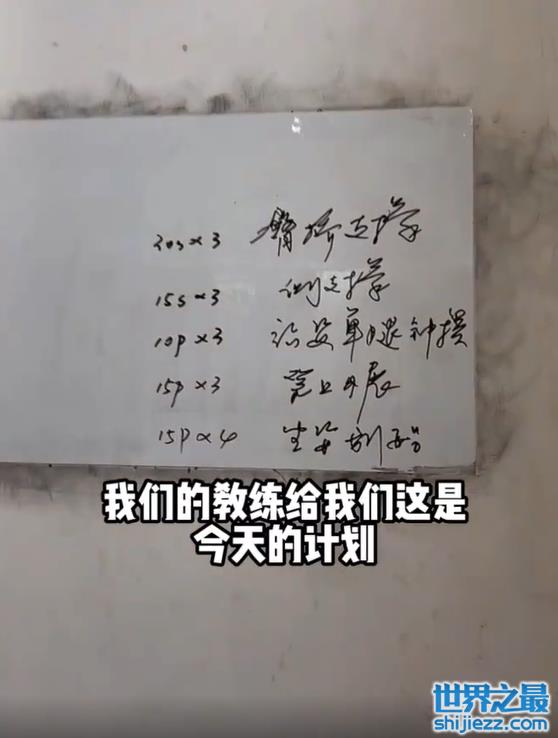 30s×3 臀桥支撑
15s×3 侧支撑
10P×3 站姿单腿钟摆
15P×3 凳上外展
15P×4 坐姿划船
我们的教练给我们这是
今天的计划
世界之最
shijiezz.com